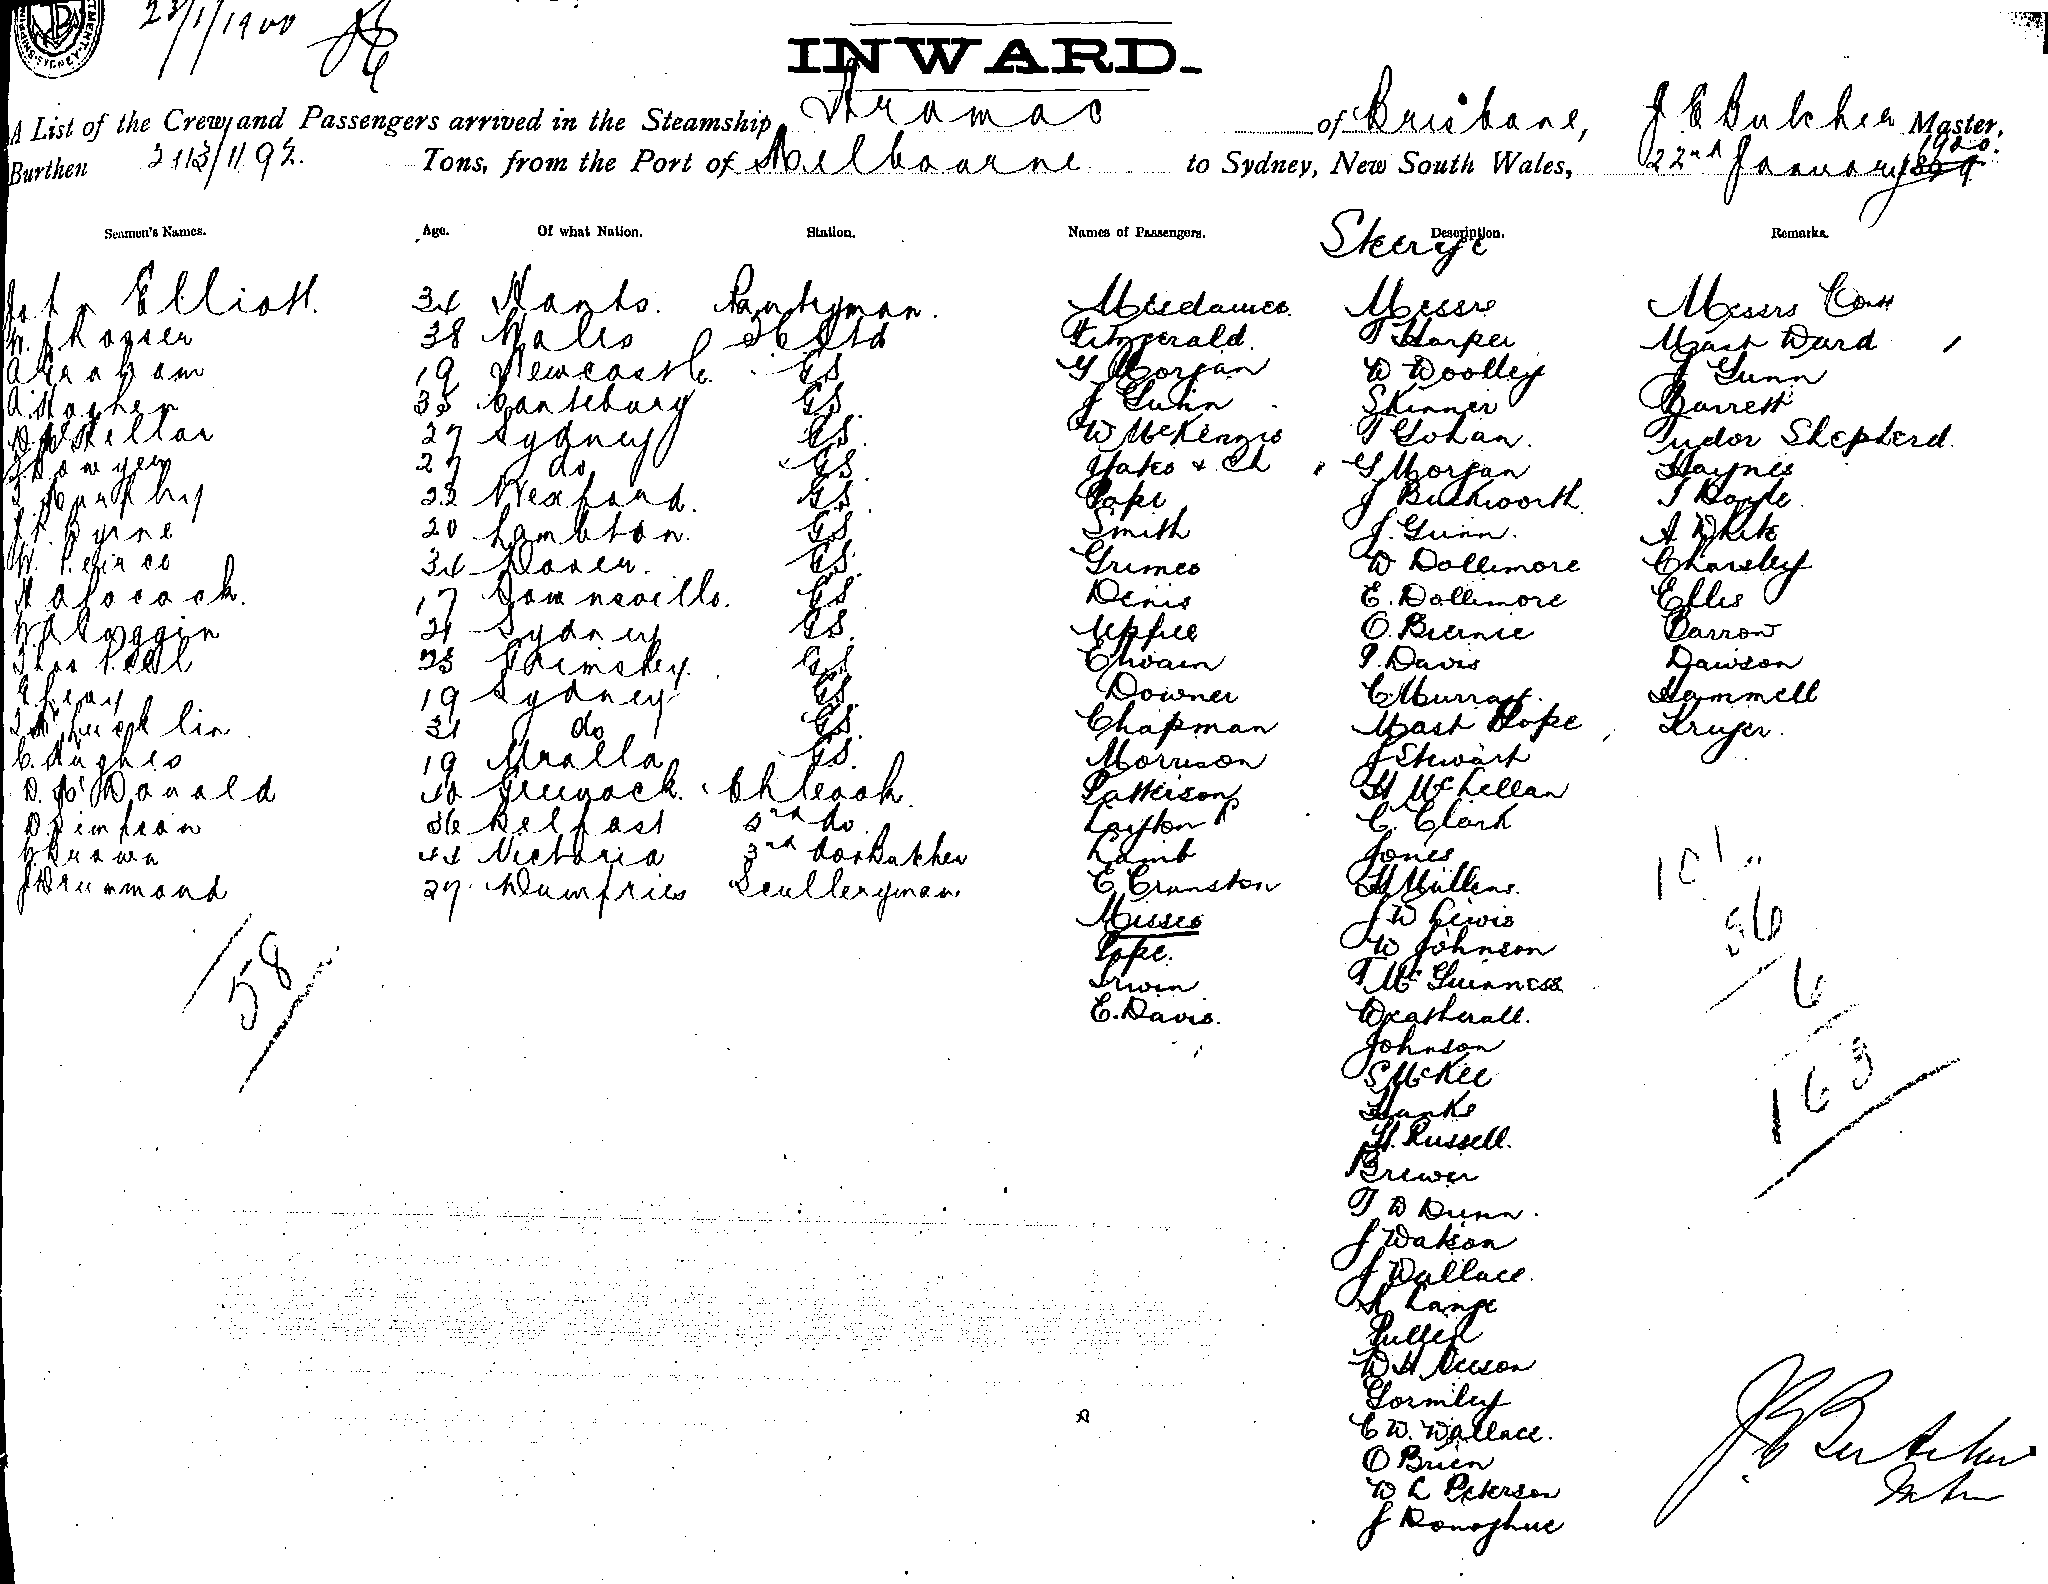 23/1/1900
INWARD.
A List of the Crew and Passengers arrived in the Steamship Aramac of Brisbane, J E Butcher Master,
Burthen 2113/1192. Tons, from the Port of Melbourne to Sydney, New South Wales, 22nd January 1900.
Seamen's Names. Age. Of what Nation. Station. Names of Passengers. Description. Remarks.
Steerage
John Elliott. 34 Hants. Pantryman. Mesdames Messrs Messrs Cont
38 Wales Fitzgerald. T Harper Mast Ward
A Graham 19 Newcastle GS G Morgan W Woolley J Gunn
35 Canterbury GS. J Gunn Skinner Barrett
27 Sydney GS. W McKenzie T Gohan. Tudor Shepherd.
27 do GS. Yates & Ch G Morgan Haynes
22 Wexford. GS. Pope J Buckworth T Boyle
J. Byrne 20 Lambton. GS. Smith J. Gunn. A White
W. Peirce 34 Dover. GS. Grimes W Dollimore Charsley
17 Townsville. GS Denis E. Dollimore Ellis
21 Sydney GS. Upfill O. Biernie Darrow
Thos Peel 23 Grimsby. GS Elwain P. Davis Dawson
19 Sydney GS. Downer C Murray. Hammell
31 do GS. Chapman Mast Pope Kruger.
C. Hughes 19 Uralla GS. Morrison J Stewart
D. McDonald 40 Greenock. Ch Cook. Patterson H McLellan
D Simpson 36 Belfast 2nd do Layton C. Clark
H Brown 44 Victoria 3rd do & Butcher Lamb Jones
J Drummond 27 Dumfries Sculleryman E Cranston H Mullens.
Misses J W Lewis
Pope. W Johnson
Irwin T McGuinness
E. Davis. Weatherall.
Johnson
S McKee
Hanks
H. Russell.
Brewer
T W Dunn.
J Watson
J Wallace.
A Lange
Pullen
W H Neeson
Gormley
C W. Wallace.
O Brien
W L Peterson
J Donoghue
58
101
56
6
163
J E Butcher
Master